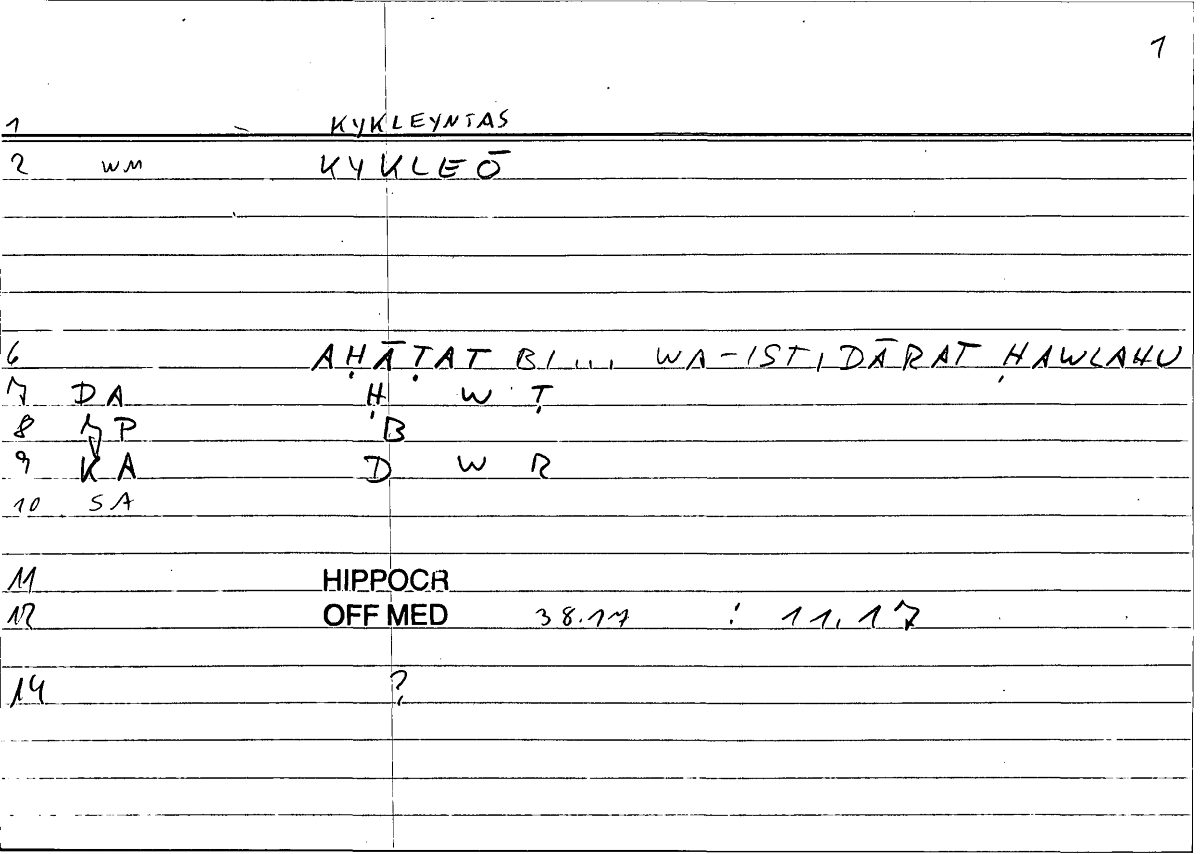 1
1 KYKLEYNTAS
2 WM KYKLEŌ
6 AḤĀṬAT BI... WA-ISTIDĀRAT ḤAWLAHU
7 DA Ḥ W Ṭ
8 7P B
9 KA D W R
10 SA
11 HIPPOCR
12 OFF MED 38.17 : 11.17
14 ?